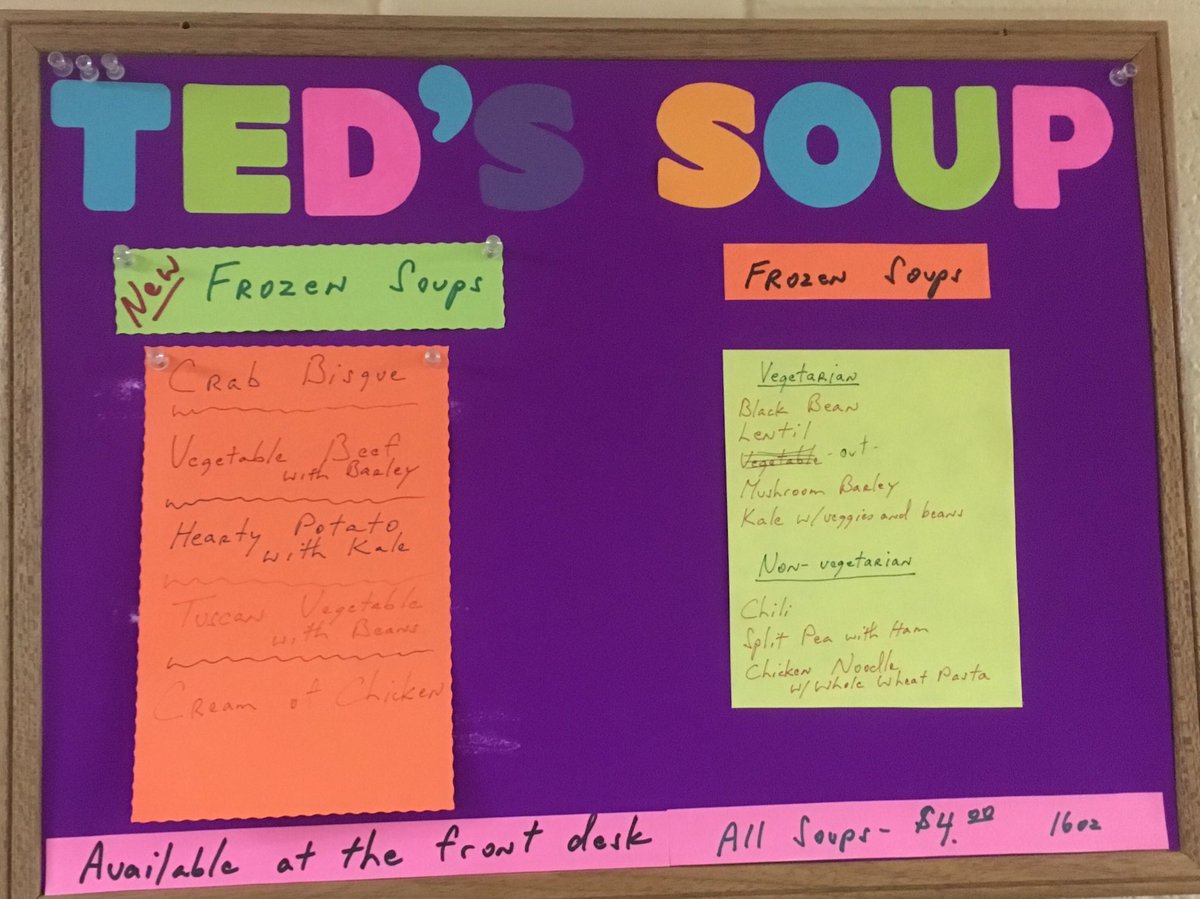 TED'S SOUP
New Frozen Soups
Crab Bisque
Vegetable Beef
with Barley
Hearty Potato
with Kale
Tuscan Vegetable
with Beans
Cream of Chicken
Frozen Soups
Vegetarian
Black Bean
Lentil
Vegetable - out -
Mushroom Barley
Kale w/veggies and beans
Non-vegetarian
Chili
Split Pea with Ham
Chicken Noodle
w/ Whole Wheat Pasta
Available at the front desk
All Soups - $4.00 16oz